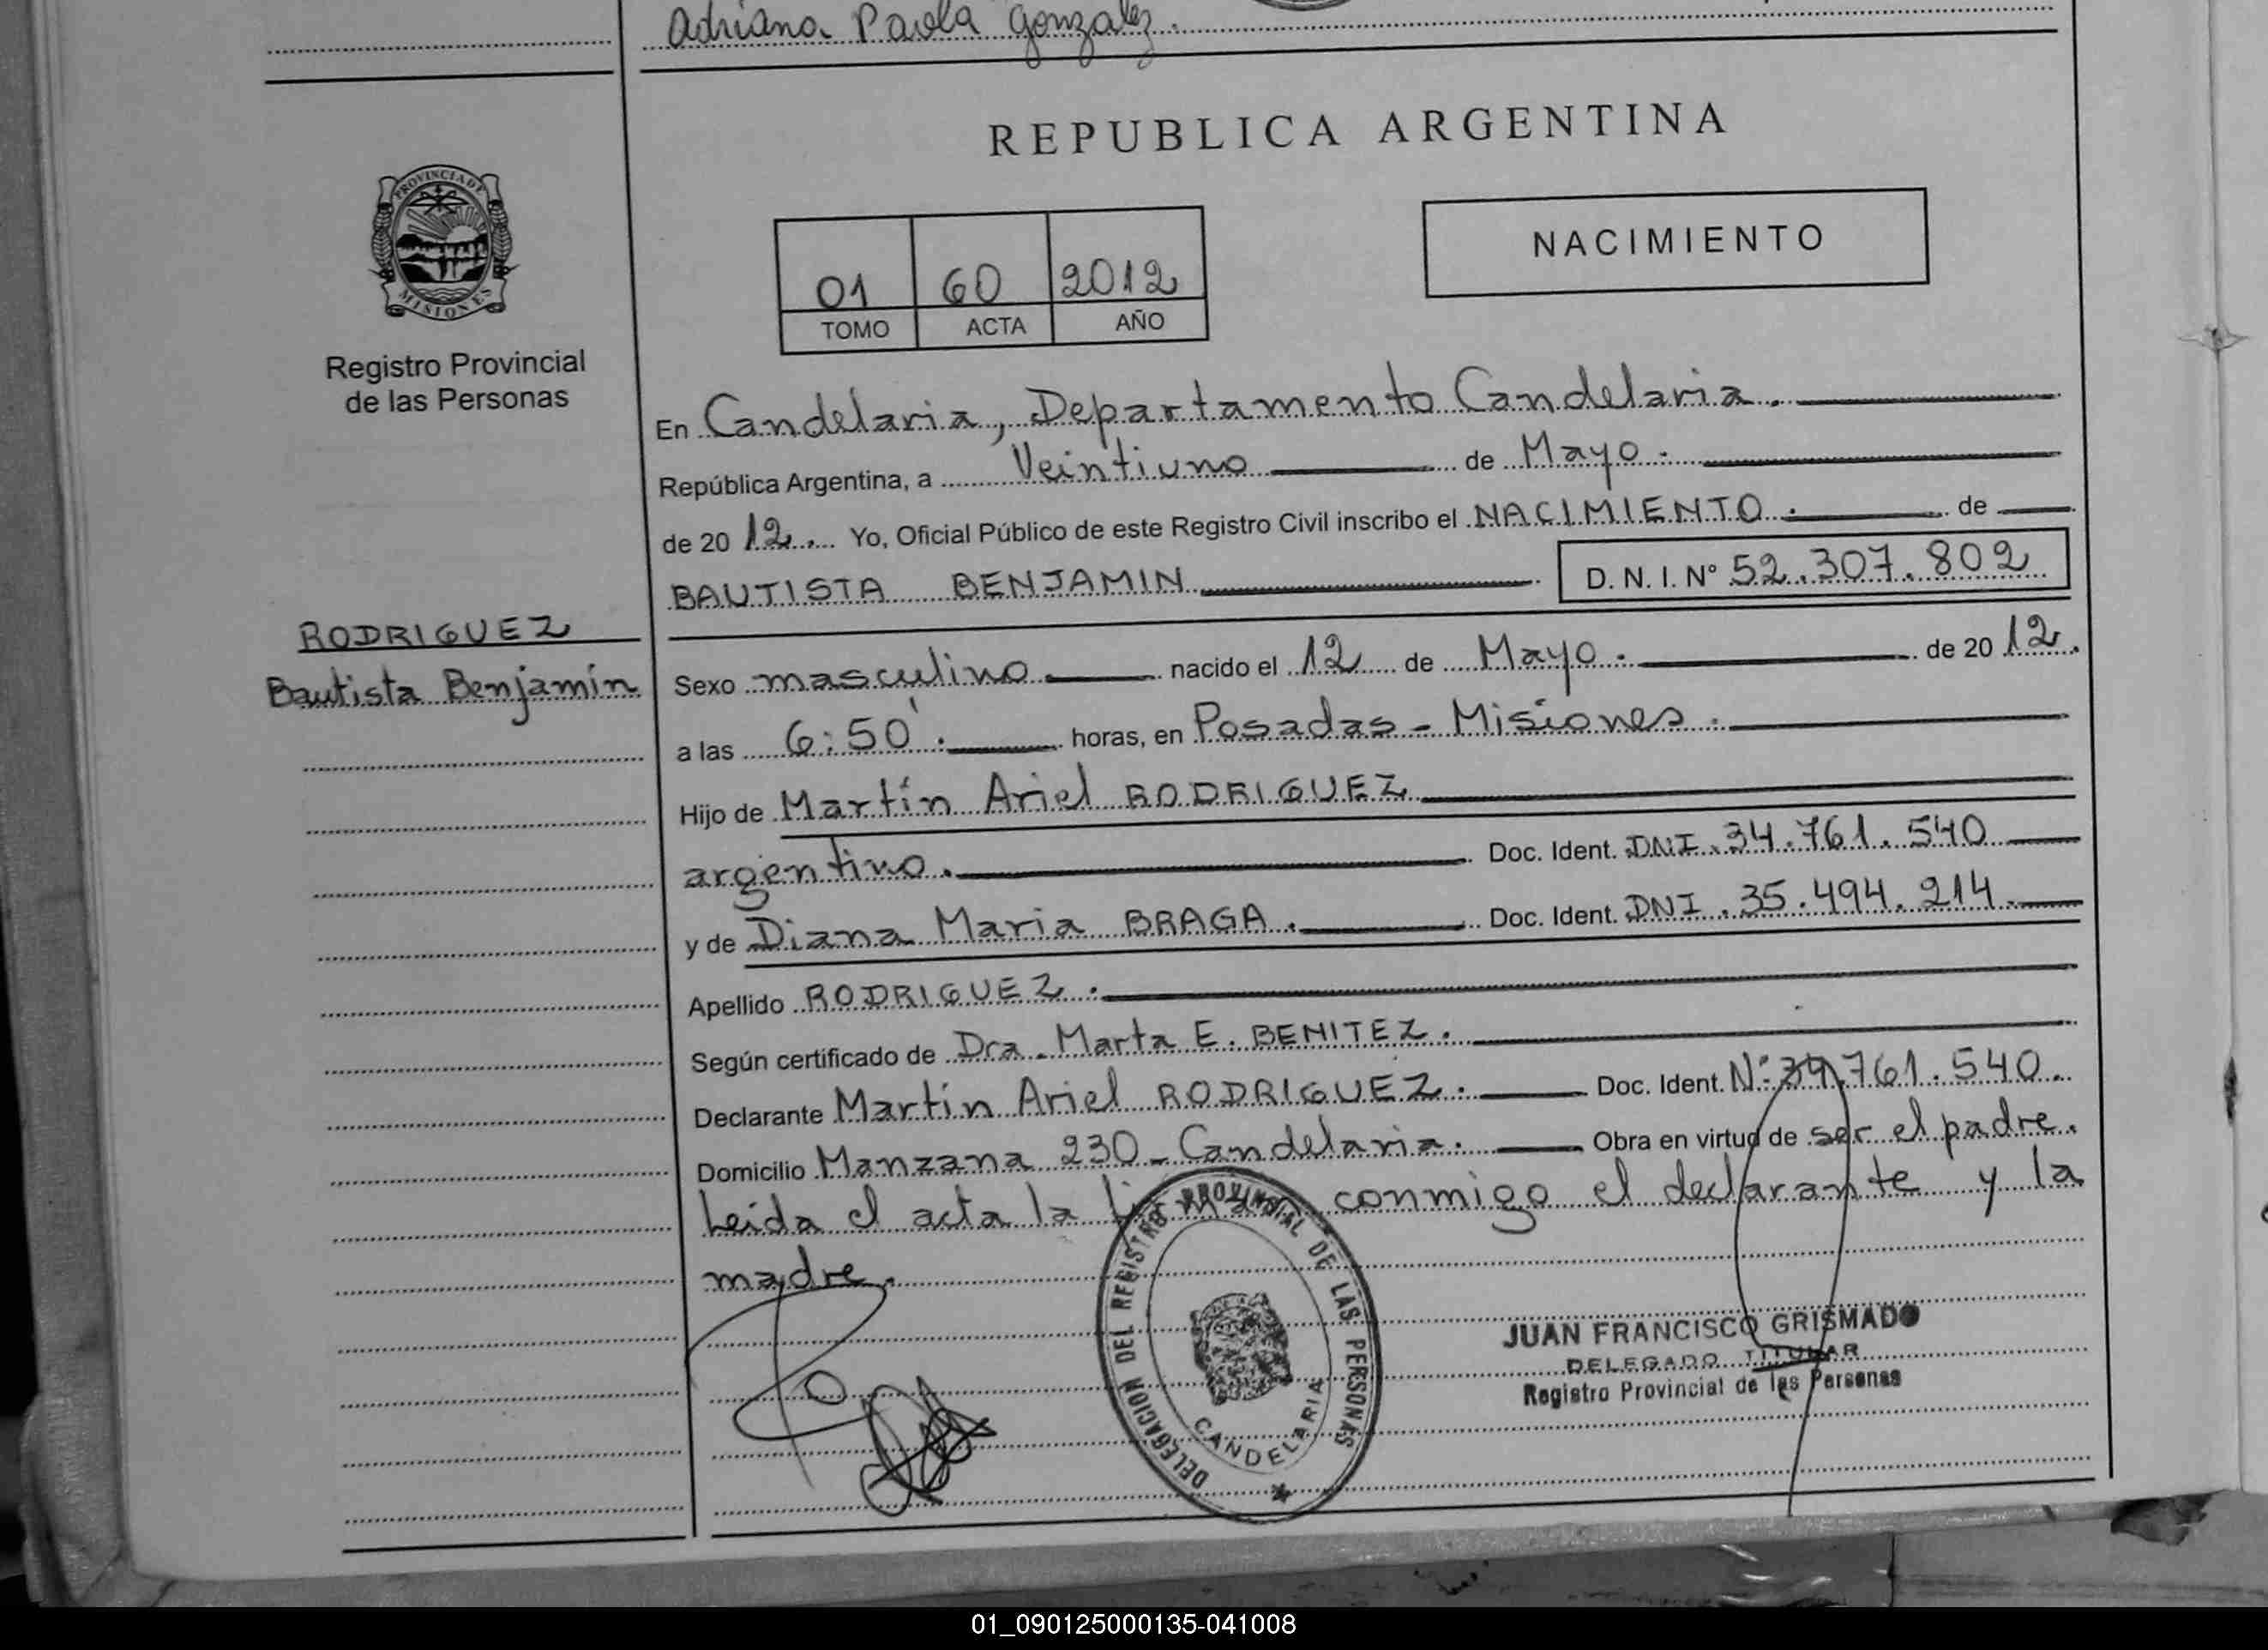 Adriana Paola Gonzalez.
REPUBLICA ARGENTINA
PROVINCIA DE
MISIONES
Registro Provincial
de las Personas
NACIMIENTO
01 60 2012
TOMO ACTA AÑO
En Candelaria, Departamento Candelaria.
República Argentina, a Veintiuno de Mayo.
de 2012. Yo, Oficial Público de este Registro Civil inscribo el NACIMIENTO. de
BAUTISTA BENJAMIN D. N. I. Nº 52.307.802
RODRIGUEZ
Bautista Benjamín
Sexo masculino nacido el 12 de Mayo. de 2012.
a las 6:50'. horas, en Posadas - Misiones.
Hijo de Martín Ariel RODRIGUEZ
argentino. Doc. Ident. DNI. 34.761.540
y de Diana Maria BRAGA. Doc. Ident. DNI. 35.494.214
Apellido RODRIGUEZ.
Según certificado de Dra. Marta E. BENITEZ.
Declarante Martín Ariel RODRIGUEZ. Doc. Ident. Nº 34.761.540.
Domicilio Manzana 230 - Candelaria. Obra en virtud de ser el padre.
Leida el acta la firman conmigo el declarante y la
madre.
DELEGACION DEL REGISTRO PROVINCIAL DE LAS PERSONAS
CANDELARIA
JUAN FRANCISCO GRISMADO
DELEGADO TITULAR
Registro Provincial de las Personas
01_090125000135-041008